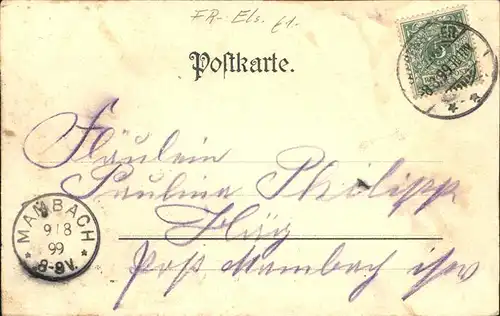 FR-Els. 61.
Postkarte.
Fräulein
Paulina Philipp
Häg
Post Mambach i/W
MAMBACH
9 | 8
99
8-9V.